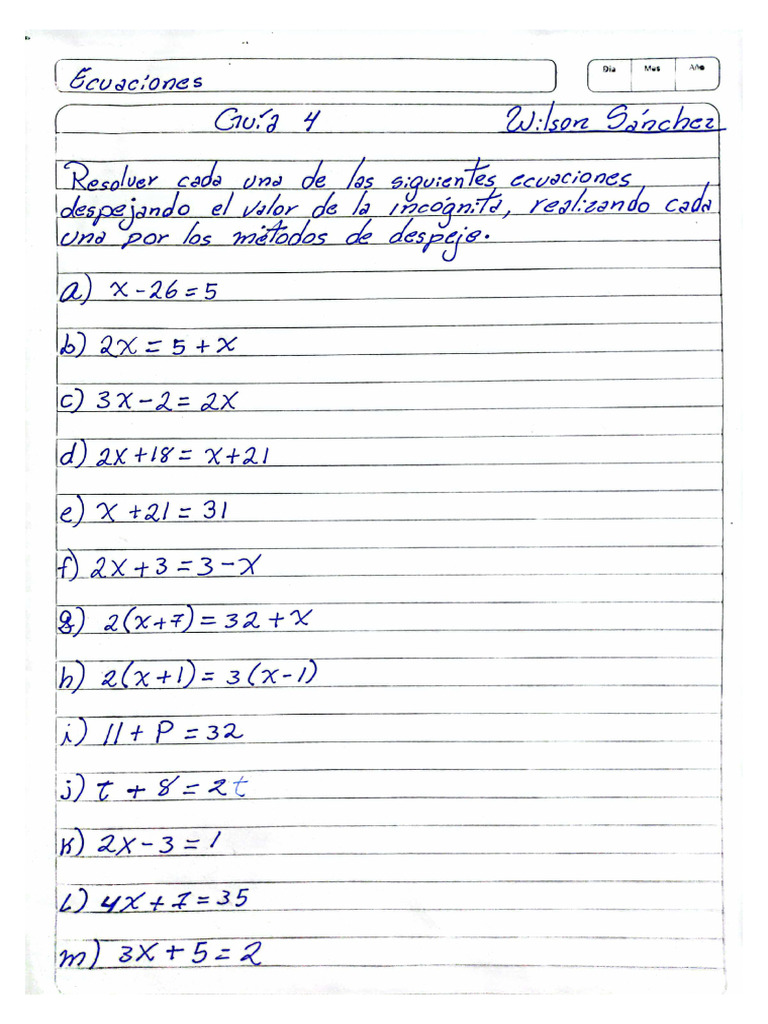 Ecuaciones
Día Mes Año
Guía 4 Wilson Sánchez
Resolver cada una de las siguientes ecuaciones
despejando el valor de la incógnita, realizando cada
una por los métodos de despeje.
a) x - 26 = 5
b) 2x = 5 + x
c) 3x - 2 = 2x
d) 2x + 18 = x + 21
e) x + 21 = 31
f) 2x + 3 = 3 - x
g) 2(x + 7) = 32 + x
h) 2(x + 1) = 3(x - 1)
i) 11 + P = 32
j) t + 8 = 2t
k) 2x - 3 = 1
l) 4x + 7 = 35
m) 3x + 5 = 2